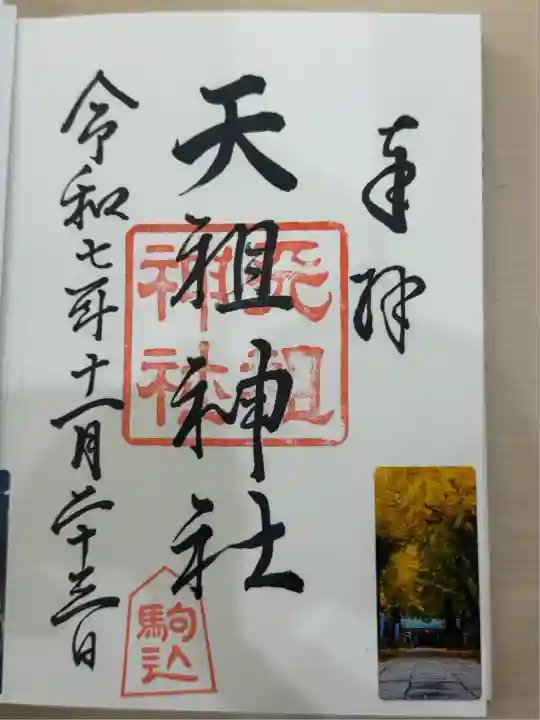 奉拝
天祖神社
天祖神社
駒込
令和七年十一月二十三日